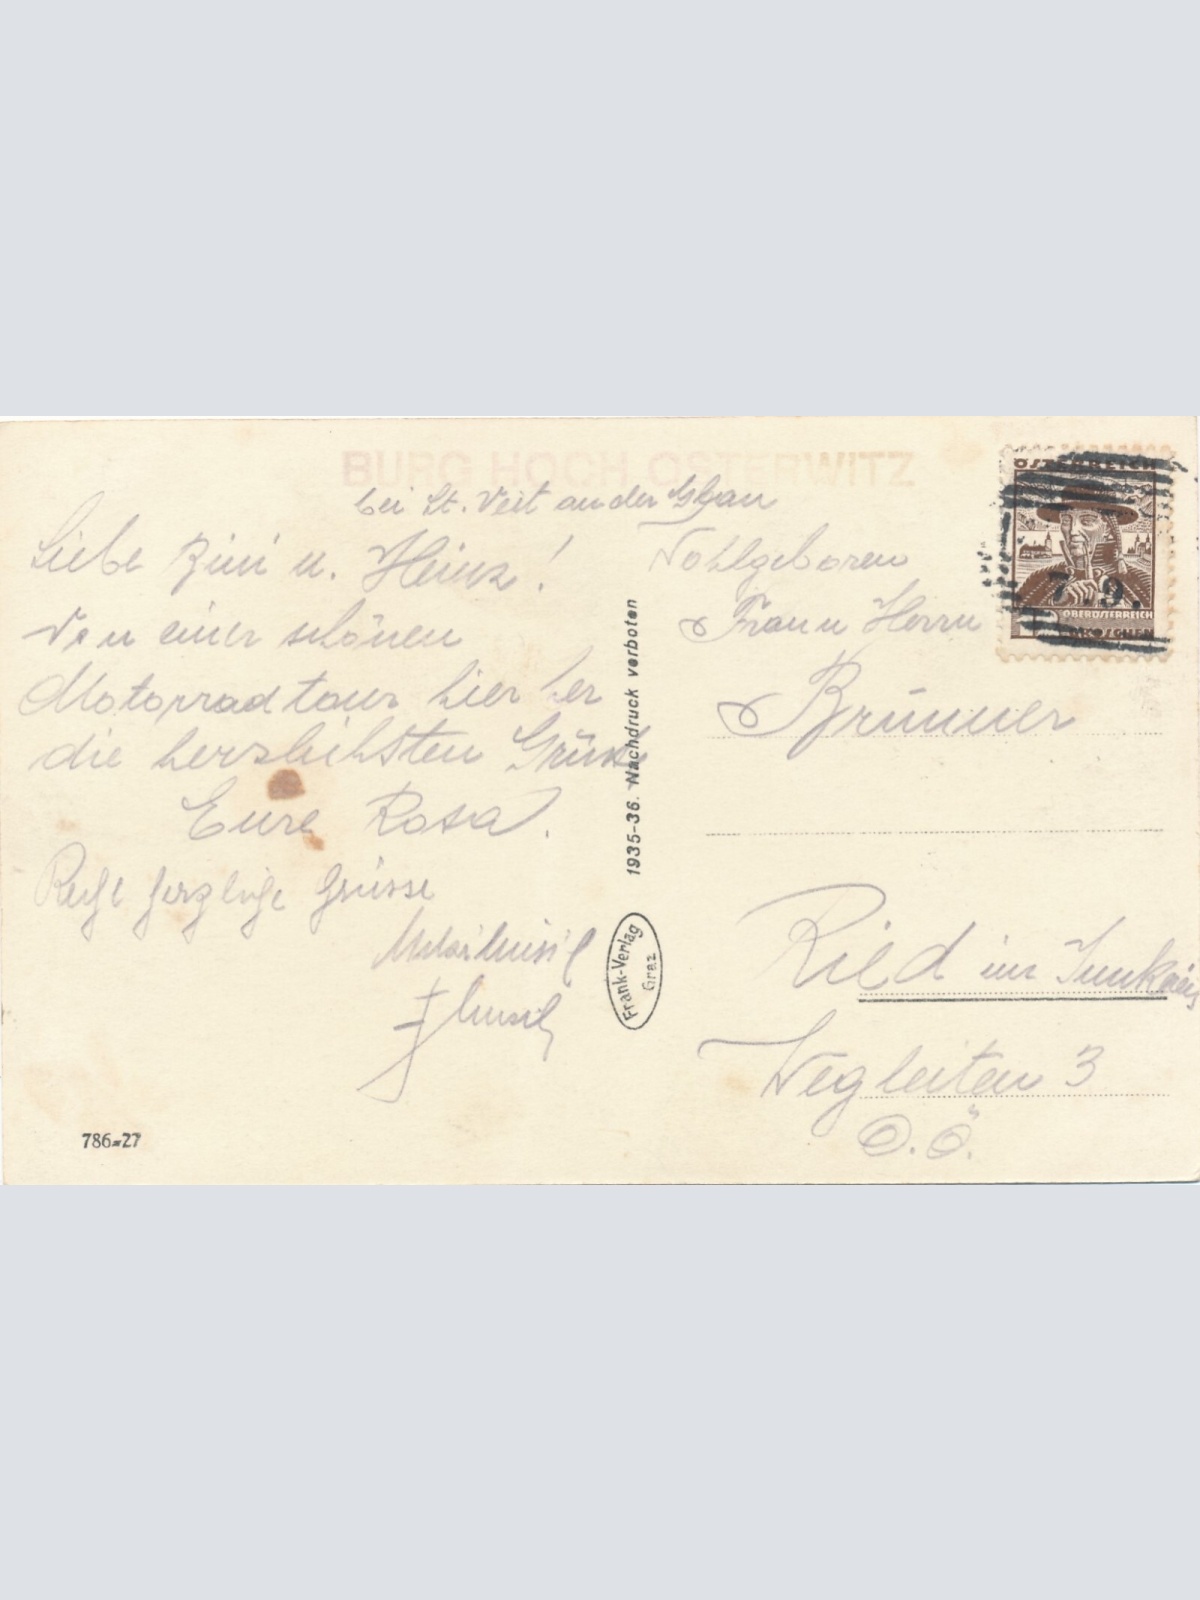 BURG HOCH OSTERWITZ
bei St. Veit an der Glan
Liebe Zini u. Heinz!
Von einer schönen
Motorradtour hier her
die herzlichsten Grüsse
Eure Rosa.
Recht herzliche Grüsse
1935-36. Nachdruck verboten
Frank-Verlag
Graz
786=27
ÖSTERREICH
7.9.
OBERÖSTERREICH
GROSCHEN
Wohlgeboren
Frau u Herrn
Brunner
Ried im Innkreis
Wegleiten 3
O.Ö.